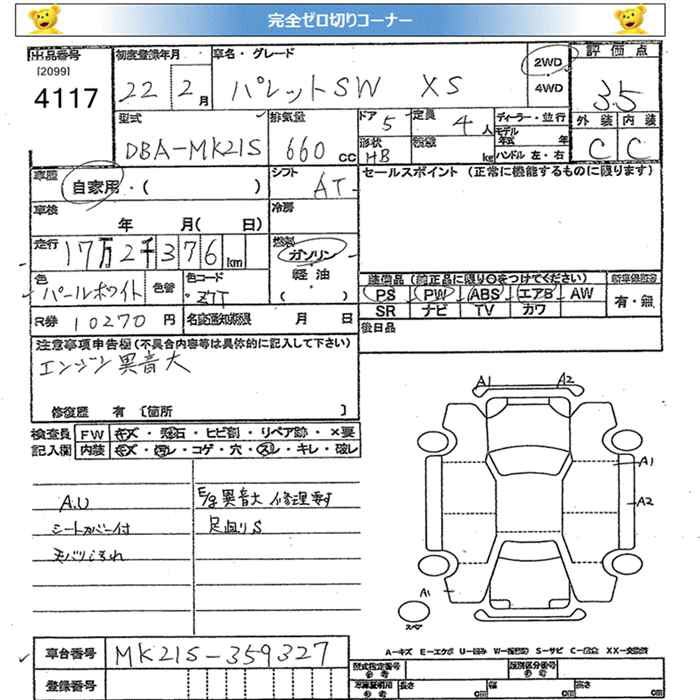 完全ゼロ切りコーナー
出品番号
[2099]
4117
初度登録年月
22 年 2 月
車名・グレード
パレットSW XS
2WD
4WD
評価点
3.5
外装 内装
C C
型式
DBA-MK21S
排気量
660 cc
ドア
5
形状
HB
定員
4 人
kg
ディーラー・並行
モデル年式 年
ハンドル 左・右
車歴
自家用・( )
シフト
AT
セールスポイント (正常に機能するものに限ります)
車検
年 月( 日)
冷房
走行
17万2千376 km
燃料
ガソリン・
軽油
( )
色
パールホワイト
色替
色コード
・Z7T
装備品 (純正品に限り○をつけてください)
PS PW ABS エアB AW
SR ナビ TV カワ
有・無
R券 10270 円
名変通知期限 月 日
後日品
注意事項申告欄 (不具合内容等は具体的に記入して下さい)
エンジン異音大
修復歴 有 [箇所 ]
検査員
記入欄
FW キズ・飛石・ヒビ割・リペア跡・×要
内装 キズ・汚レ・コゲ・穴・スレ・キレ・破レ
A.U
シートカバー付
E/g異音大 修理要す
足回りS
A1 A2
A1
A2
A1
スペア
A-キズ E-エクボ U-凹み W-補修跡 S-サビ C-腐食 XX-交換済
車台番号 MK21S-359327
登録番号
型式指定番号
参考
類別区分番号
参考
長さ cm 幅 cm 高さ cm